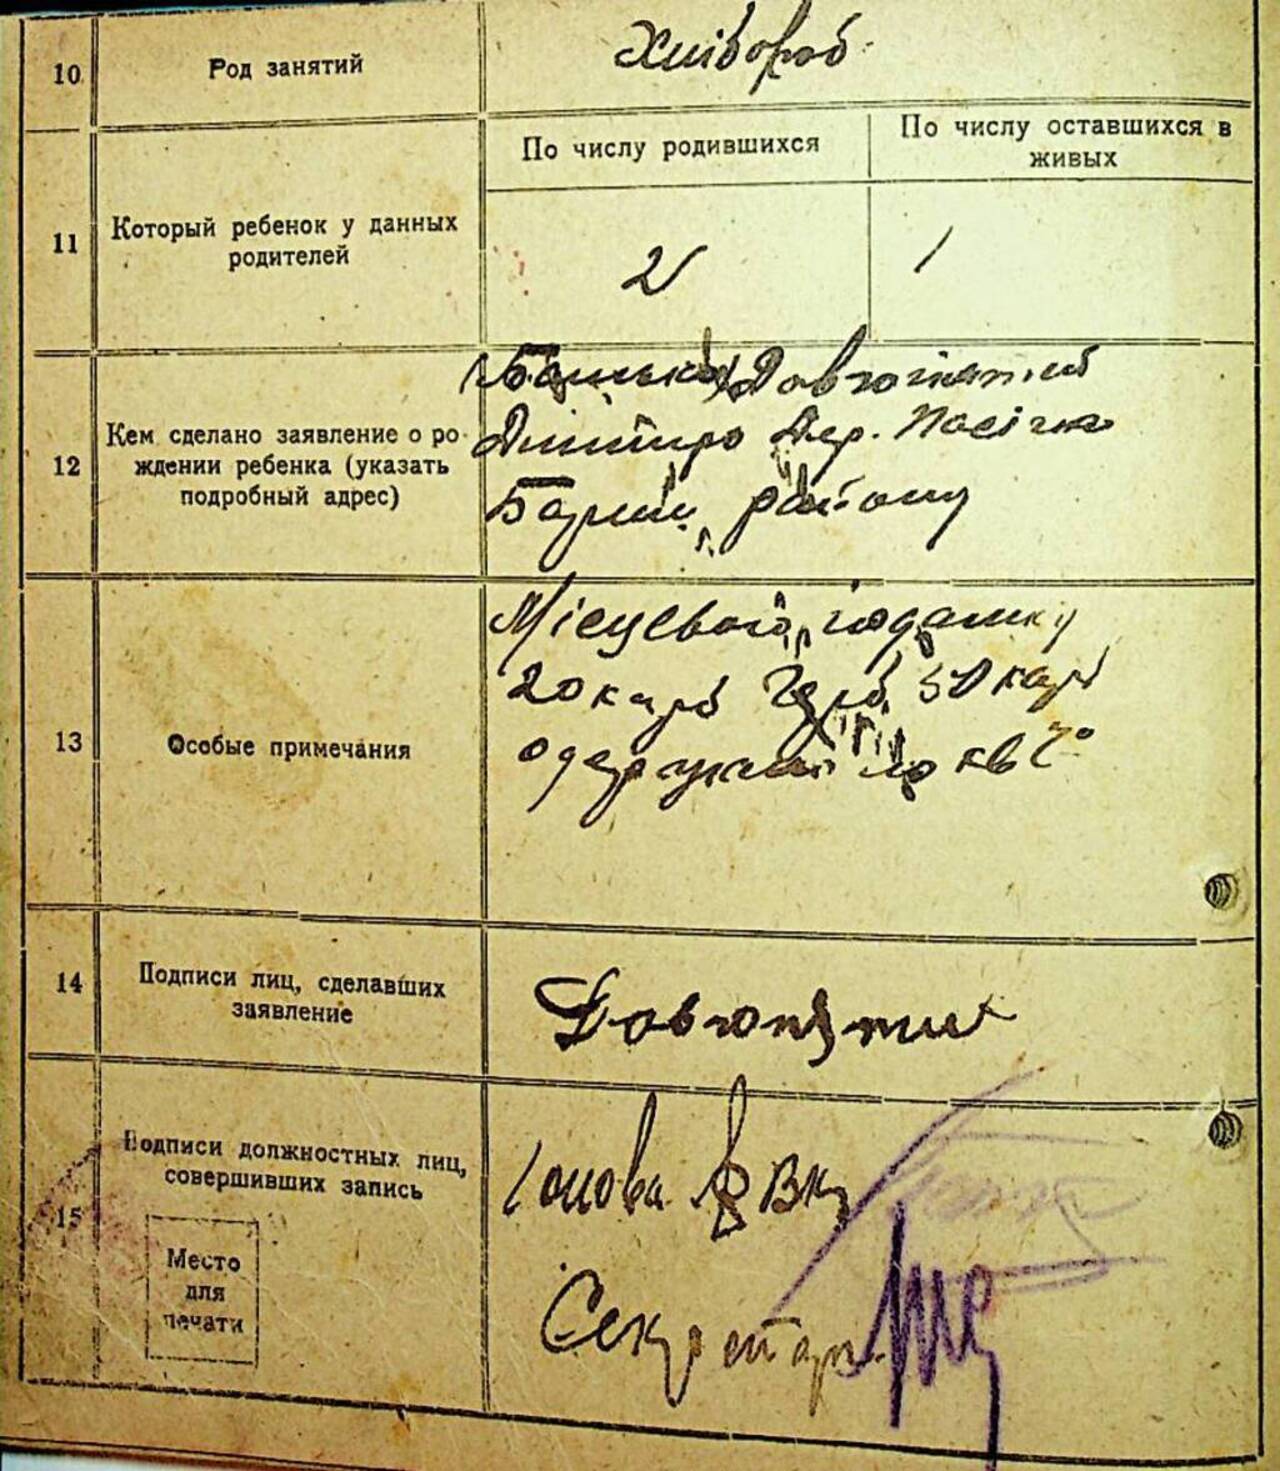 10 Род занятий Хлібороб
По числу родившихся По числу оставшихся в живых
11 Который ребенок у данных родителей
2 1
12 Кем сделано заявление о рождении ребенка (указать подробный адрес)
(Батько) Довгопятий
Дмитро Дер. Пасічна
Барськ. району
13 Особые примечания
Місцевого податку
20 карб Герб. 50 карб
одержано по кв
14 Подписи лиц, сделавших заявление
Довгопятий
15 Подписи должностных лиц, совершивших запись
Голова
Место для печати
Секретарь